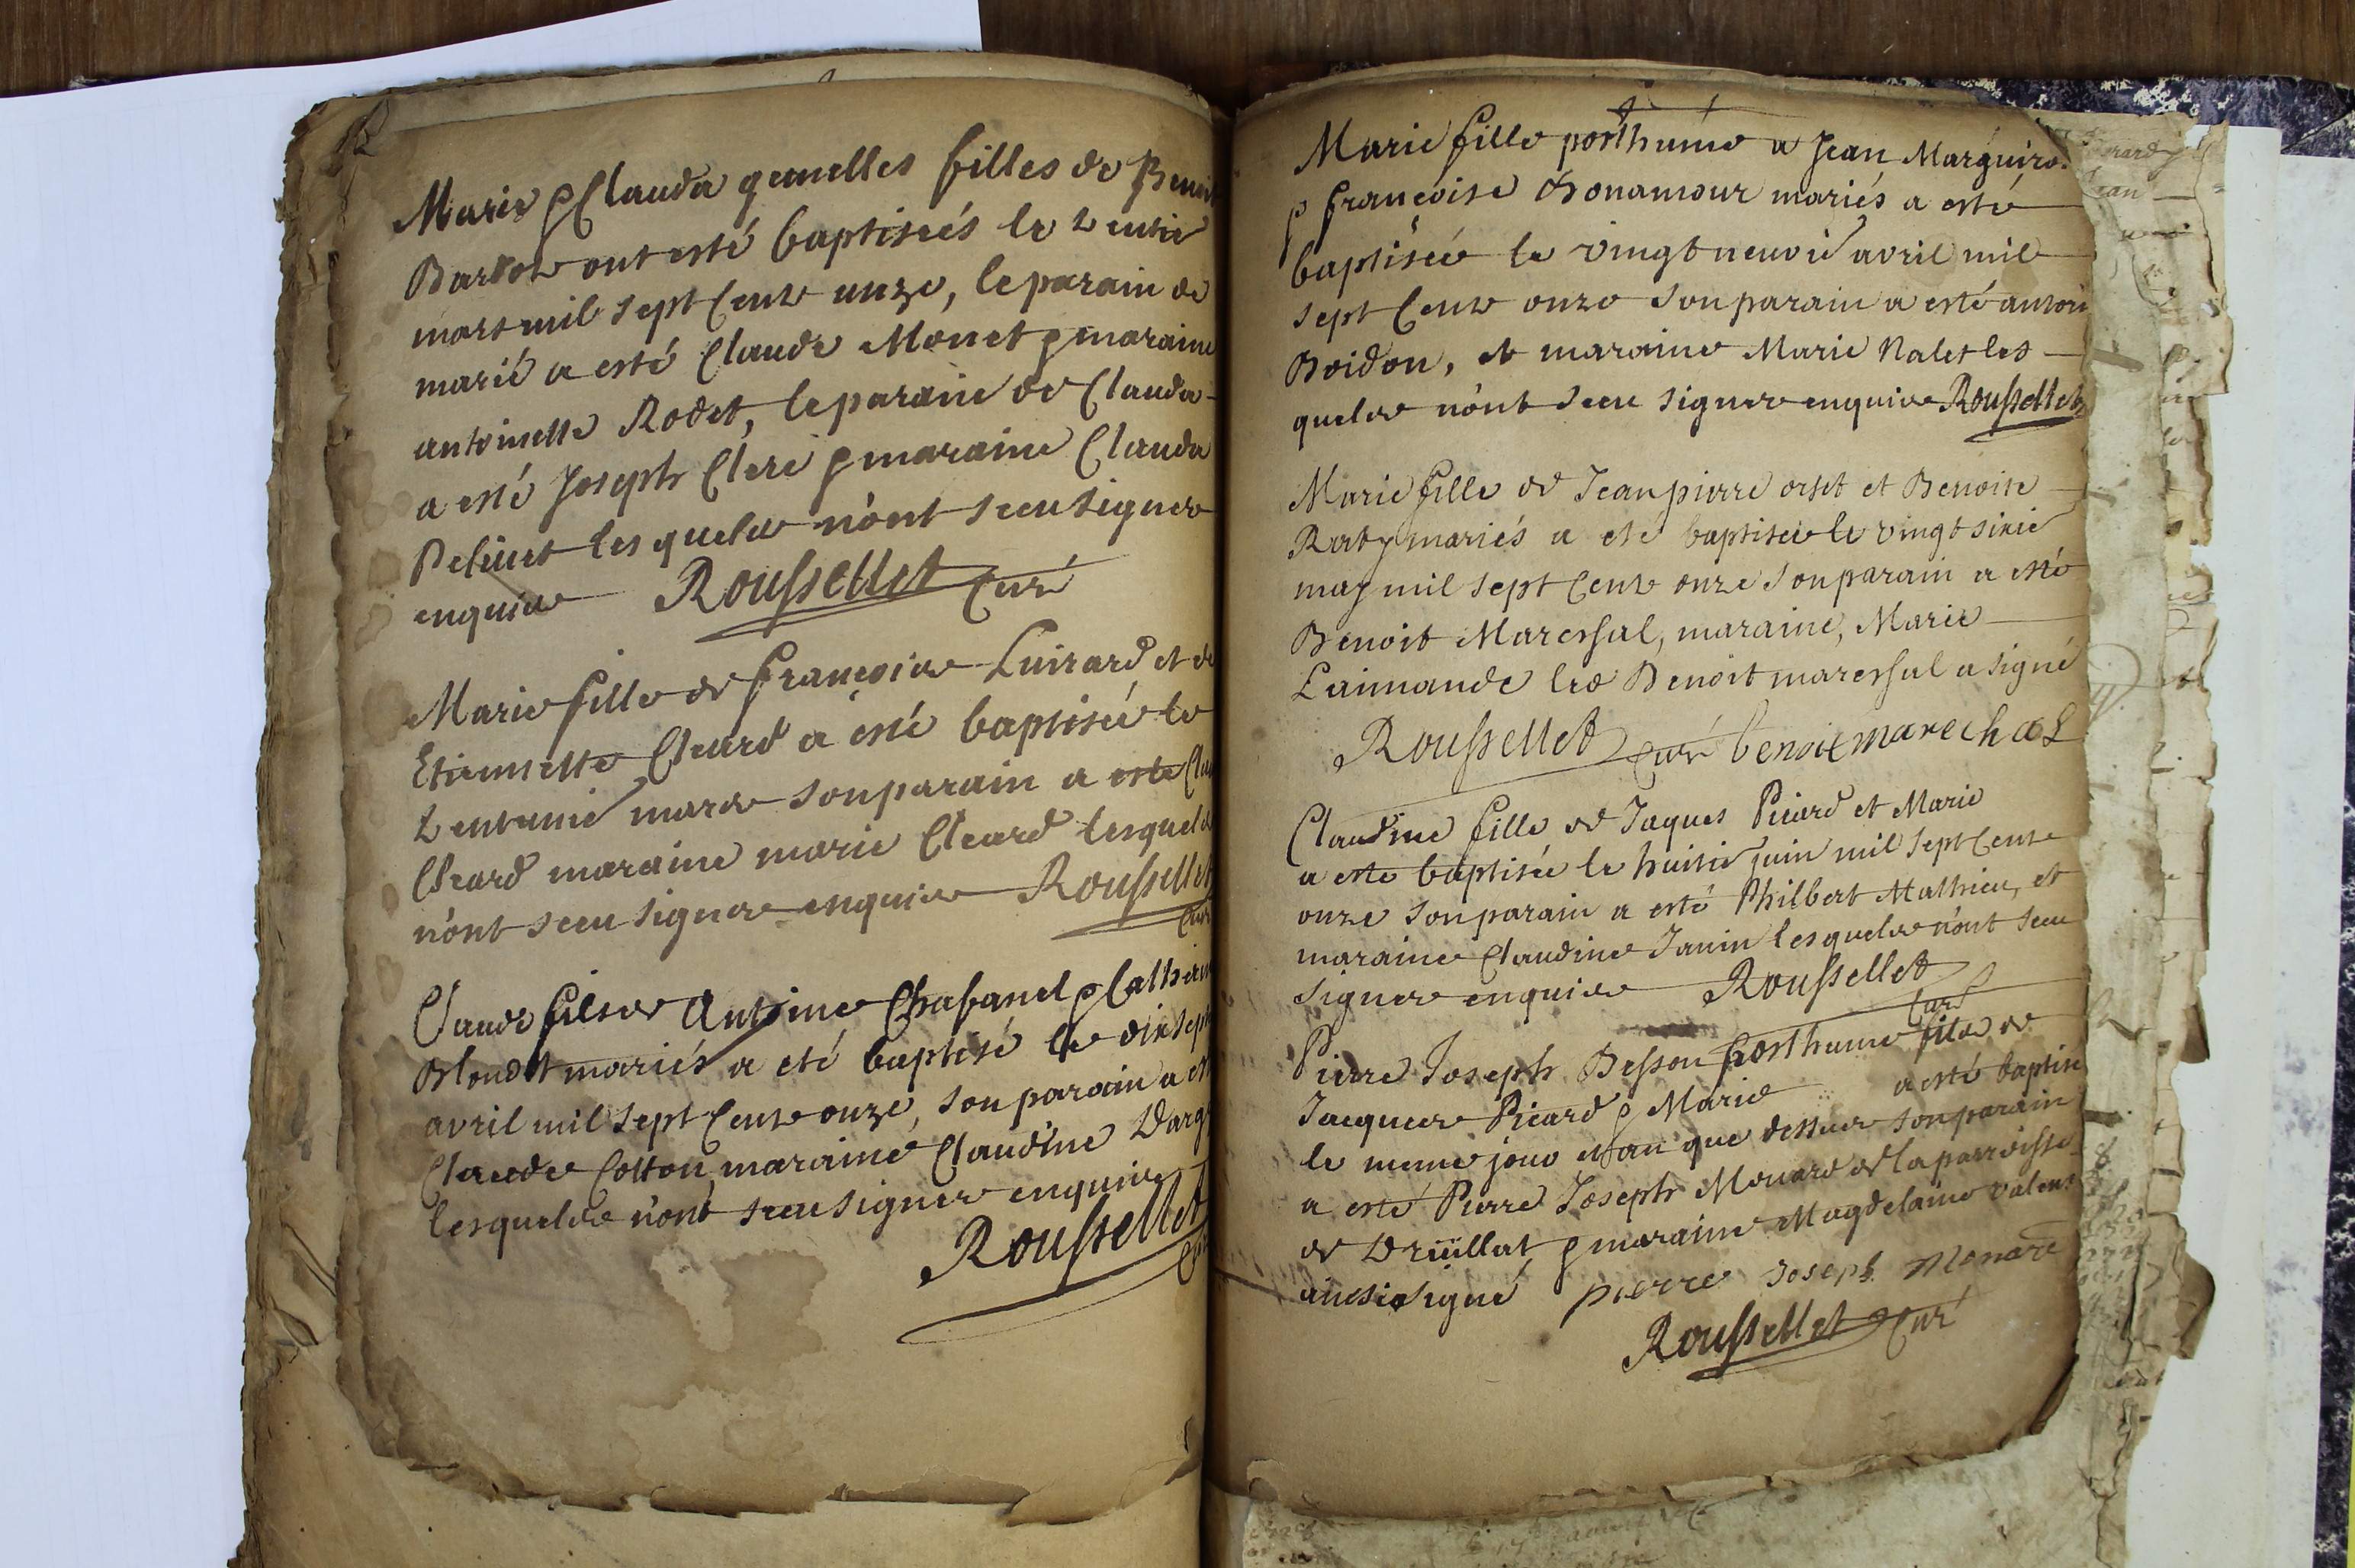 Marie & Clauda gemelles filles de Benoit
Bardot ont esté baptiseés le
mars mil sept cents unze, le parain de
marie a esté Claude Monet & maraine
antoinette Rodet, le parain de Clauda
a esté Joseph Clere & maraine Clauda
lesquels n'ont sceu signer
enquis Roussellet curé
Marie fille de françois Luirard et de
Etiennette Cheard a esté baptiseé le
mars son parain a esté
Cheard maraine marie Cheard lesquels
n'ont sceu signer enquis Roussellet
curé
Claude fils de Antoine Chafanel & Catherine
Blondet mariés a eté baptisé le dix sept
avril mil sept cents onze, son parain a esté
Claude Cotton, maraine Claudine
lesquels n'ont sceu signer enquis
Roussellet
curé
Marie fille posthume a Jean Marguiro
& françoise Bonamour mariés a esté
baptiseé le vingt neuvie avril mil
sept cents onze son parain a esté antoi
Boidon, et maraine Marie Nalet les
quels n'ont sceu signer enquis Roussellet
Marie fille de Jean pierre orset et Benoite
Raty mariés a eté baptiseé le vingt sixie
may mil sept cents onze son parain a esté
Benoit Maressal, maraine, Marie
Laimande led Benoit maressal a signé
Roussellet curé benoit marechal
Claudine fille de Jaques Picard et Marie
a esté baptisée le huitie juin mil sept cents
onze son parain a esté Philbert Mathieu, et
maraine Claudine Janin lesquels n'ont sceu
signer enquis Roussellet
curé
Pierre Joseph Besson posthume fils de
Jacques Picard & Marie a esté baptisé
le meme jour et an que dessus son parain
a esté Pierre Joseph Monard de la parroisse
de Druillat, & maraine Magdelaine valens
ainsi signé pierre Joseph Monard
Roussellet curé